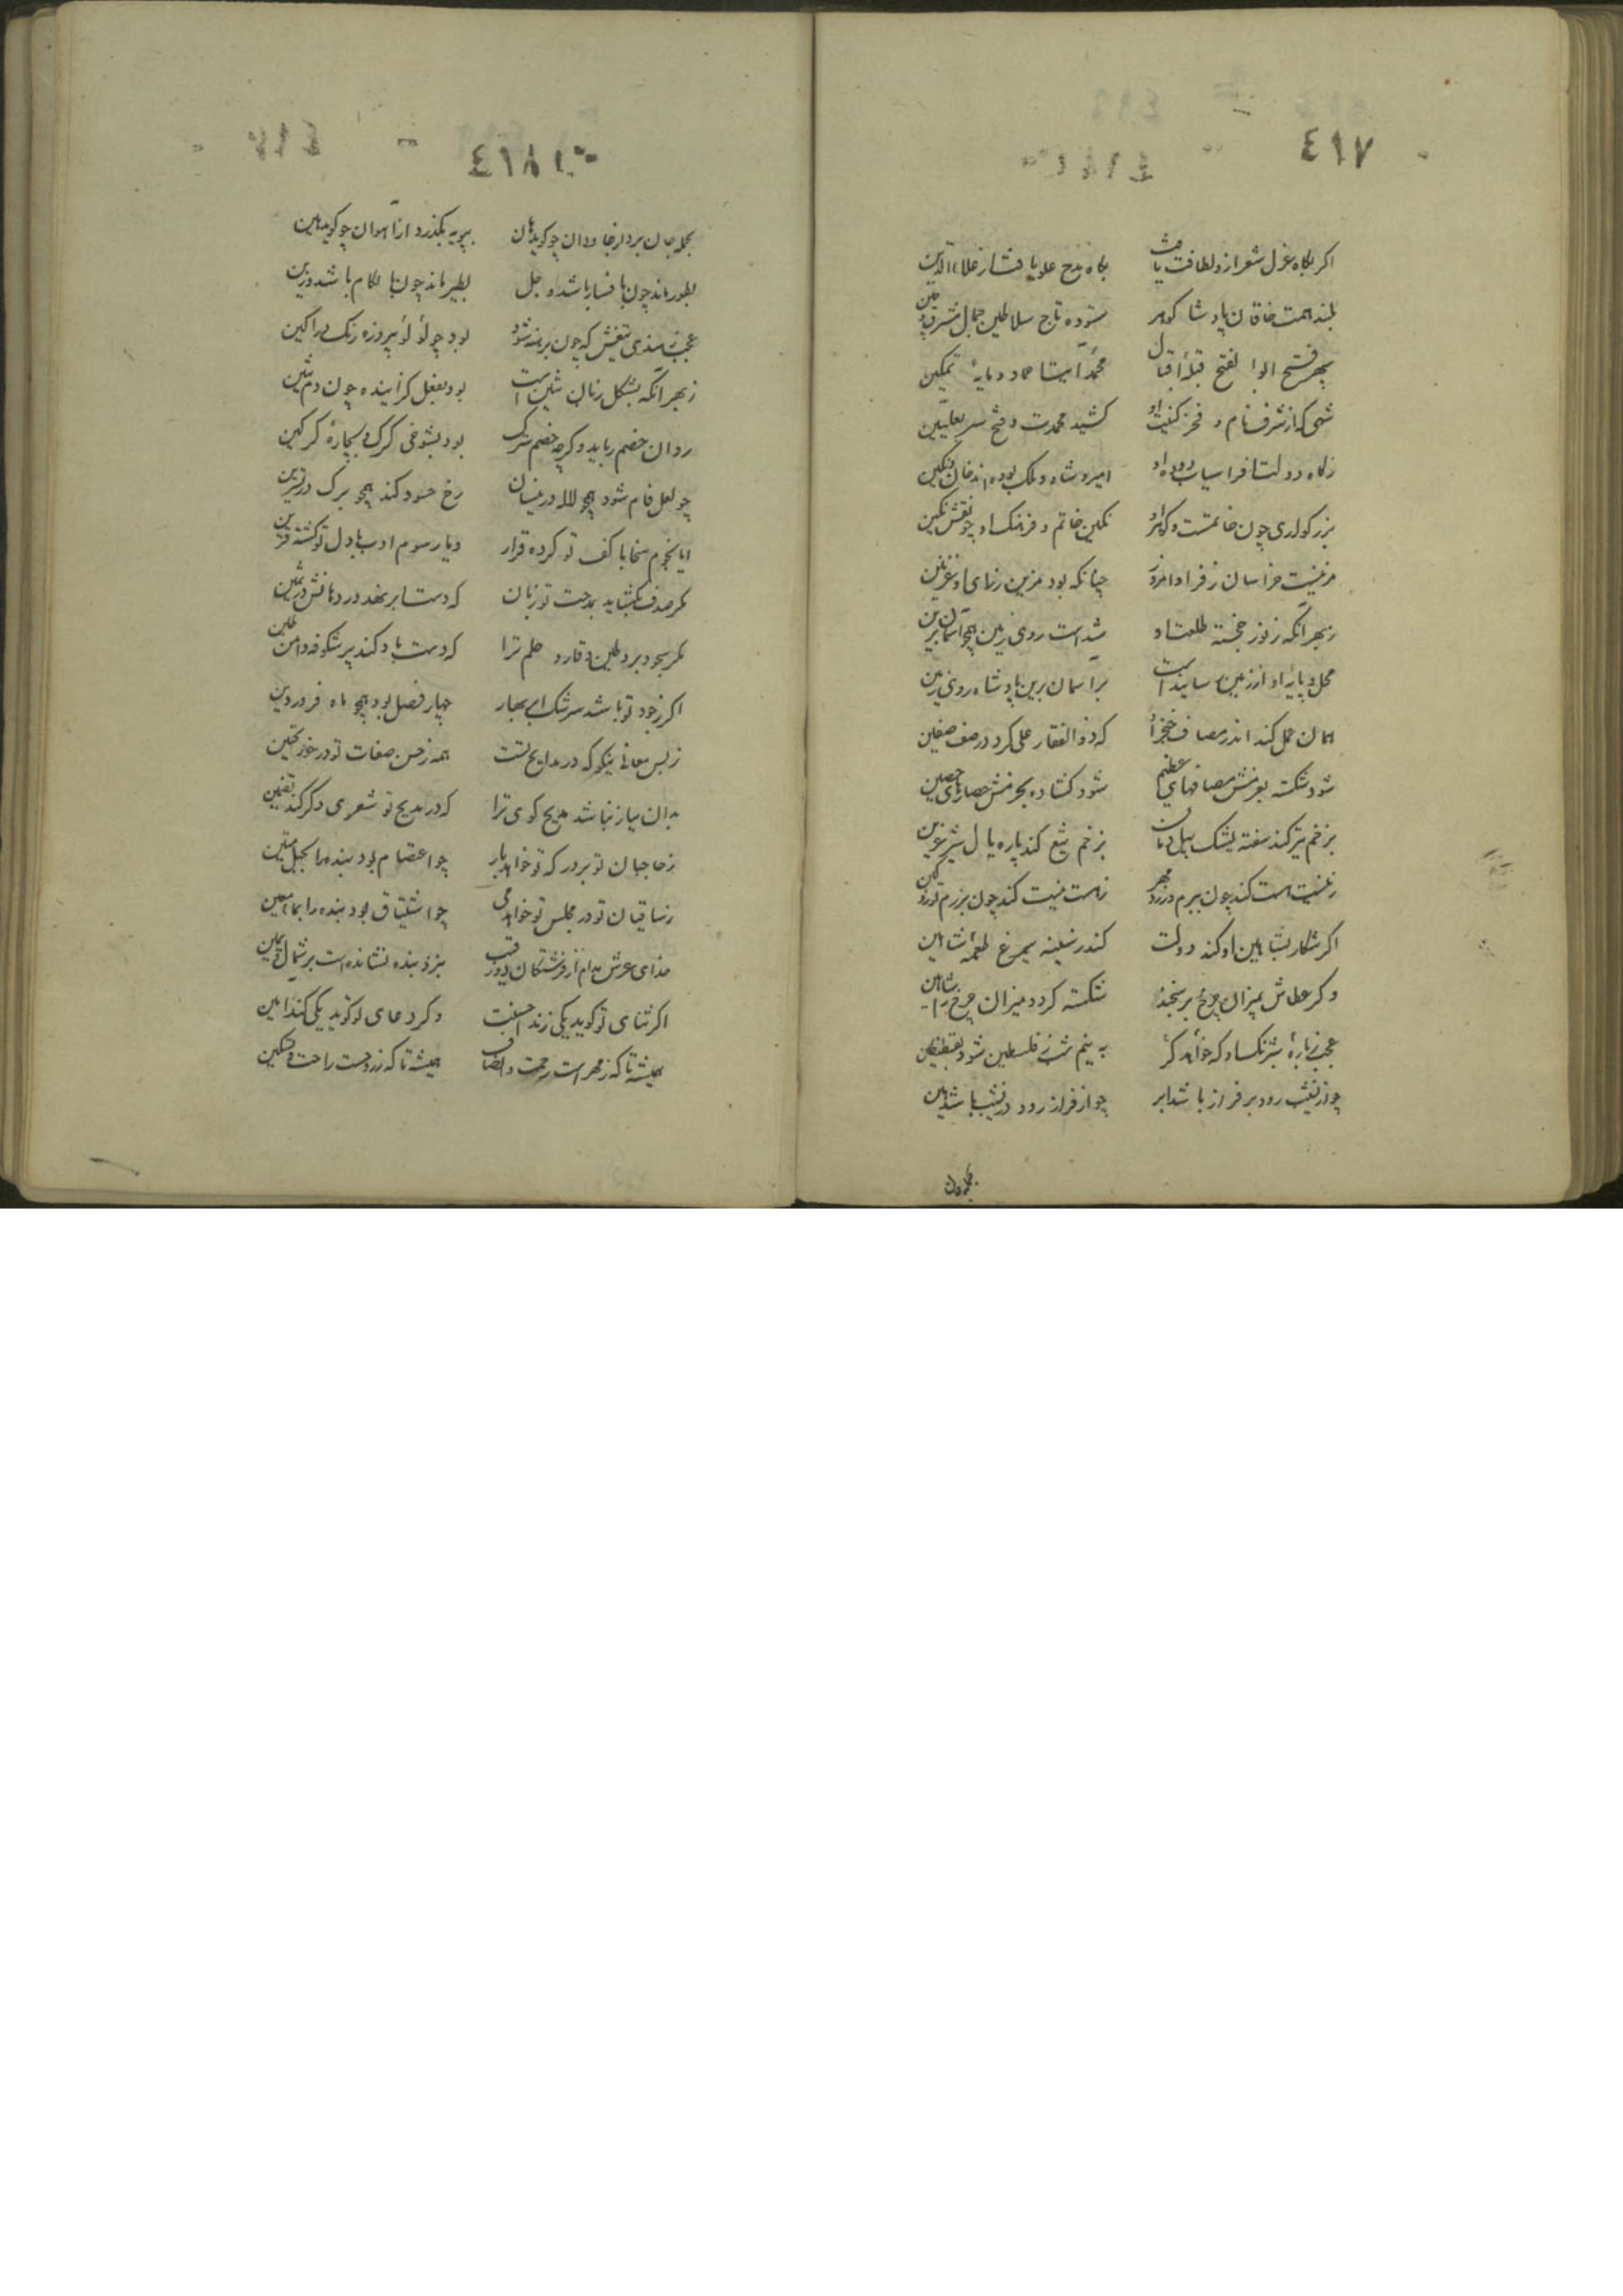 ٤١٧
اکر بکاه غزل شعر ازو لطافت یافت بکاه مدح علو یافت از علاء الدین
بلند همت خاقان پادشا کوهر ستوده تاج سلاطین جمال مشرق و چین
سپهر فتح ابوا لفتح قبلهٔ اقبال محمد آیت عماد و مایهٔ تمکین
شهی که از شرف نام و فخر کنیت او کشید محمدت و فتح سر بعلیین
زکاه دولت افراسیاب دودهٔ او امیر و شاه و ملک بوده اند خان و تکین
بزرکواری چون خاتمست و کوهر او نکین خاتم و فرهنک او چو نقش نکین
مزینست خراسان ز فر او امروز چنانکه بود مزین ز رای او غزنین
ز بهر آنکه ز نور خجسته طلعت او شداست روی زمین همچو آسمان برین
محل و پایه او از زمین رسانیداست بر آسمان برین پادشاه روی زمین
همان عمل کند اندر مصاف خنجر او که ذوالفقار علی کرد در صف صفین
شود شکسته بعزمش مصافهای عظیم شود کشاده بحزمش حصارهای حصین
بزخم تیر کند سفته یشک پیل دمان بزخم تیغ کند پاره یال شیر عرین
ز نیست هست کند چون ببزم ورزد مهر ز هست نیست کند چون برزم توزد کین
اکر شکار بشاهین او کند دولت کند ز سینه سیمرغ طعمه شاهین
و کر عطاش بمیزان چرخ بر سنجند شکسته کردد میزان چرخ را شاهین
عجب ز بارهٔ شبرنک او که خواهد کر به نیم شب ز فلسطین شود بقسطنطین
چو از نشیب رود بر فراز باشد ابر چو از فراز رود در نشیب باشد هین
بحمله جان
٤١٨
بحمله جان برد از جاودان چو کوید هان بپویه بکذرد از آهوان چو کوید هین
بطور ماند چون با فسار باشد و جل بطیر ماند چون با لکام باشد و زین
عجب ز هندی تیغش که چون برهنه شود بود چو لؤلؤ پیروزه رنک در آکین
ز بهر آنکه بشکل زبان تنین است بود بفعل کزاینده چون دم تنین
روان خصم رباید و کرچه خصم سترک بود بشوخی کرک و بیچارهٔ کرکین
چو لعل فام شود همچو لاله در نیسان رخ حسود کند همچو برک در تشرین
ایا نجوم سخا با کف تو کرده قرار و یا رسوم ادب با دل تو کشته قرین
مکر صدف بکشاید بمدحت تو زبان که دست ابر نهد در دهانش در ثمین
مکر سجود برد طین وقار و حلم ترا که دست باد کند پر شکوفه دامن طین
اکر ز جود تو باشد سرشک ابر بهار چهار فصل بود همچو ماه فروردین
ز بس معانی نیکو که در مدایح تست همه ز حسن صفات تو در خور تحسین
بدان نیاز نباشد مدیح کوی ترا که در مدیح تو شعری دکر کند تضمین
ز حاجبان تو بر درکه تو خواهد بار چو اعتصام بود بنده را بحبل متین
ز ساقیان تو در مجلس تو خواهد می چو اشتیاق بود بنده را بماء معین
خدای عرش مدام از فرشتکان دو رقیب بنزد بنده نشانده است بر شمال و یمین
اکر ثنای تو کوید یکی زند احسنت و کر دعای تو کوید یکی کند آمین
همیشه تا که ز مهر است رحمت و انصاف همیشه تا که ز دوست راحت و تسکین